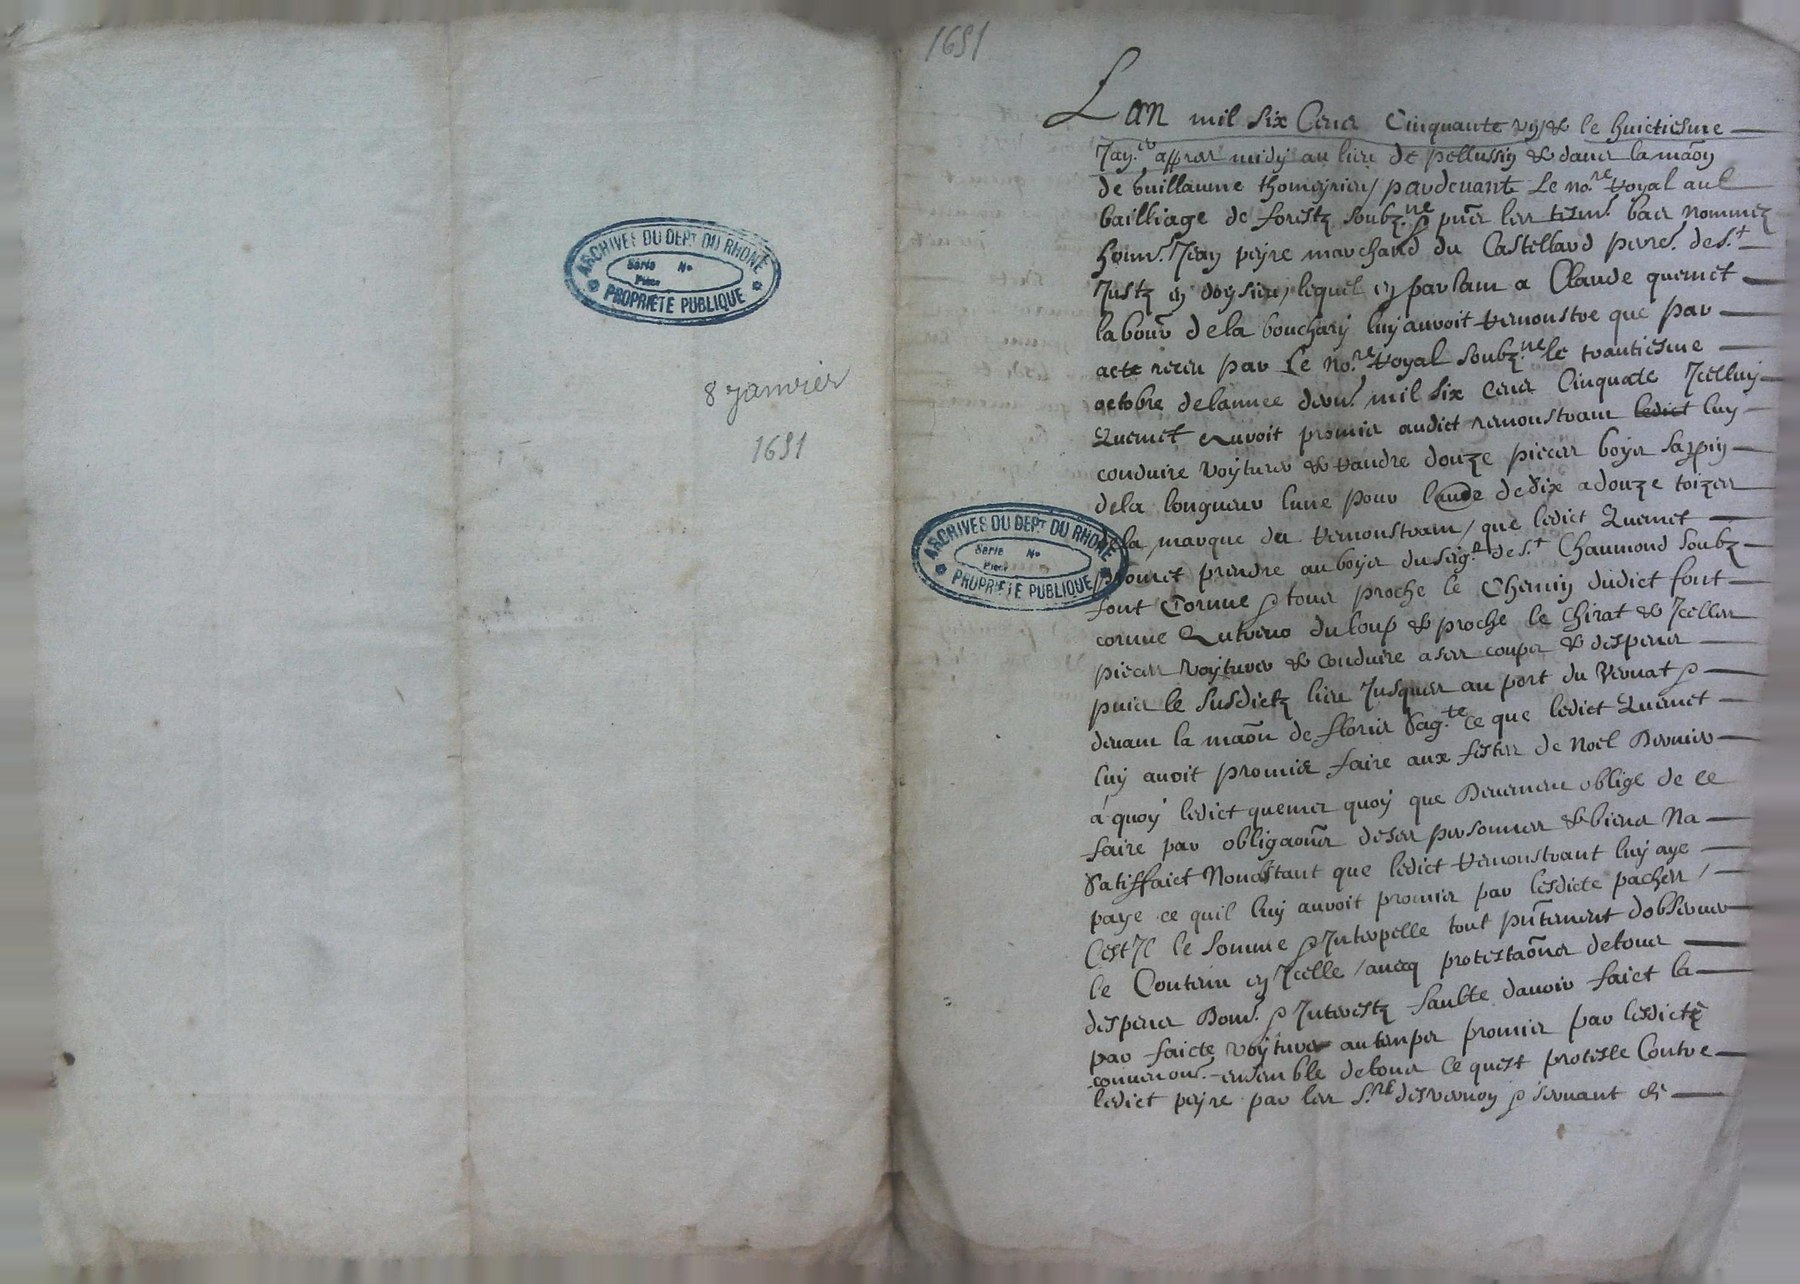 ARCHIVES DU DEPT DU RHONE
Serie No
Piece
PROPRIETE PUBLIQUE
8 janvier
1651
1651
Lan mil six Cens Cinquante ung & le huictiesme
Janer appres midy au lieu de pellussin & dans la maon
de Guillaume thomeyrieu pardevant Le no.re royal au
bailliage de forestz soubz.ne & pnts les tesm. bas nommez
honn. Jean peyre marchand du Castellard perre. de s.t
Justz en doysieu lequel en parlant a Claude quemet
labour de la bouchary luy auroit remonstre que par
acte receu par Le no.re royal soubz.ne le trantiesme
octobre de lannee dern. mil six cens Cinquate Jcelluy
Quemet auroit promis audict remonstrant ledict luy
conduire voyturer & randre douze pieces boys sappin
de la longueur lune pour laude de dix a douze toizes
de la marque du remonstrant / que ledict Quemet
promet prendre au boys du seig.r de s.t Chaumond soubz
font Cornue & tous proche le Chemin dudict font
cornue & proche le Chirat & Jcelles
pieces voyturer & conduire a ses coups & despens
puis le susdictz lieu Jusques au port du Vernat &
devant la maon de floris ce que ledict Quemet
luy avoit promis faire aux festes de Noel Dernier
a quoy ledict quemet quoy que Deuement oblige de ce
faire par obligaons de ses personnes & biens Na
satiffaict Nonobstant que ledict remonstrant luy aye
paye ce quil luy auroit promis par lesdicte paches /
Cest Jl le somme & Interpelle tout pntement dobserver
le Contenu en Jcelle / avecq protestaons de tous
despens Dom. & Interestz faulte davoir faict la
par faicte voyture au temps promis par lesdictz
convenons. ensemble de tous ce quest proteste Contre
ledict peyre par les s.rs desvernon & servant de